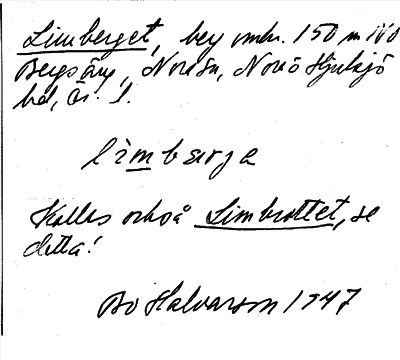 Limberget, beg omkr. 150 m NO
Bergsäng, Norsu, Norö Hjulsjö
bd, Ör. l.
limbærja
Kallas också Limbrottet, se
detta!
Bo Halvarson 1947